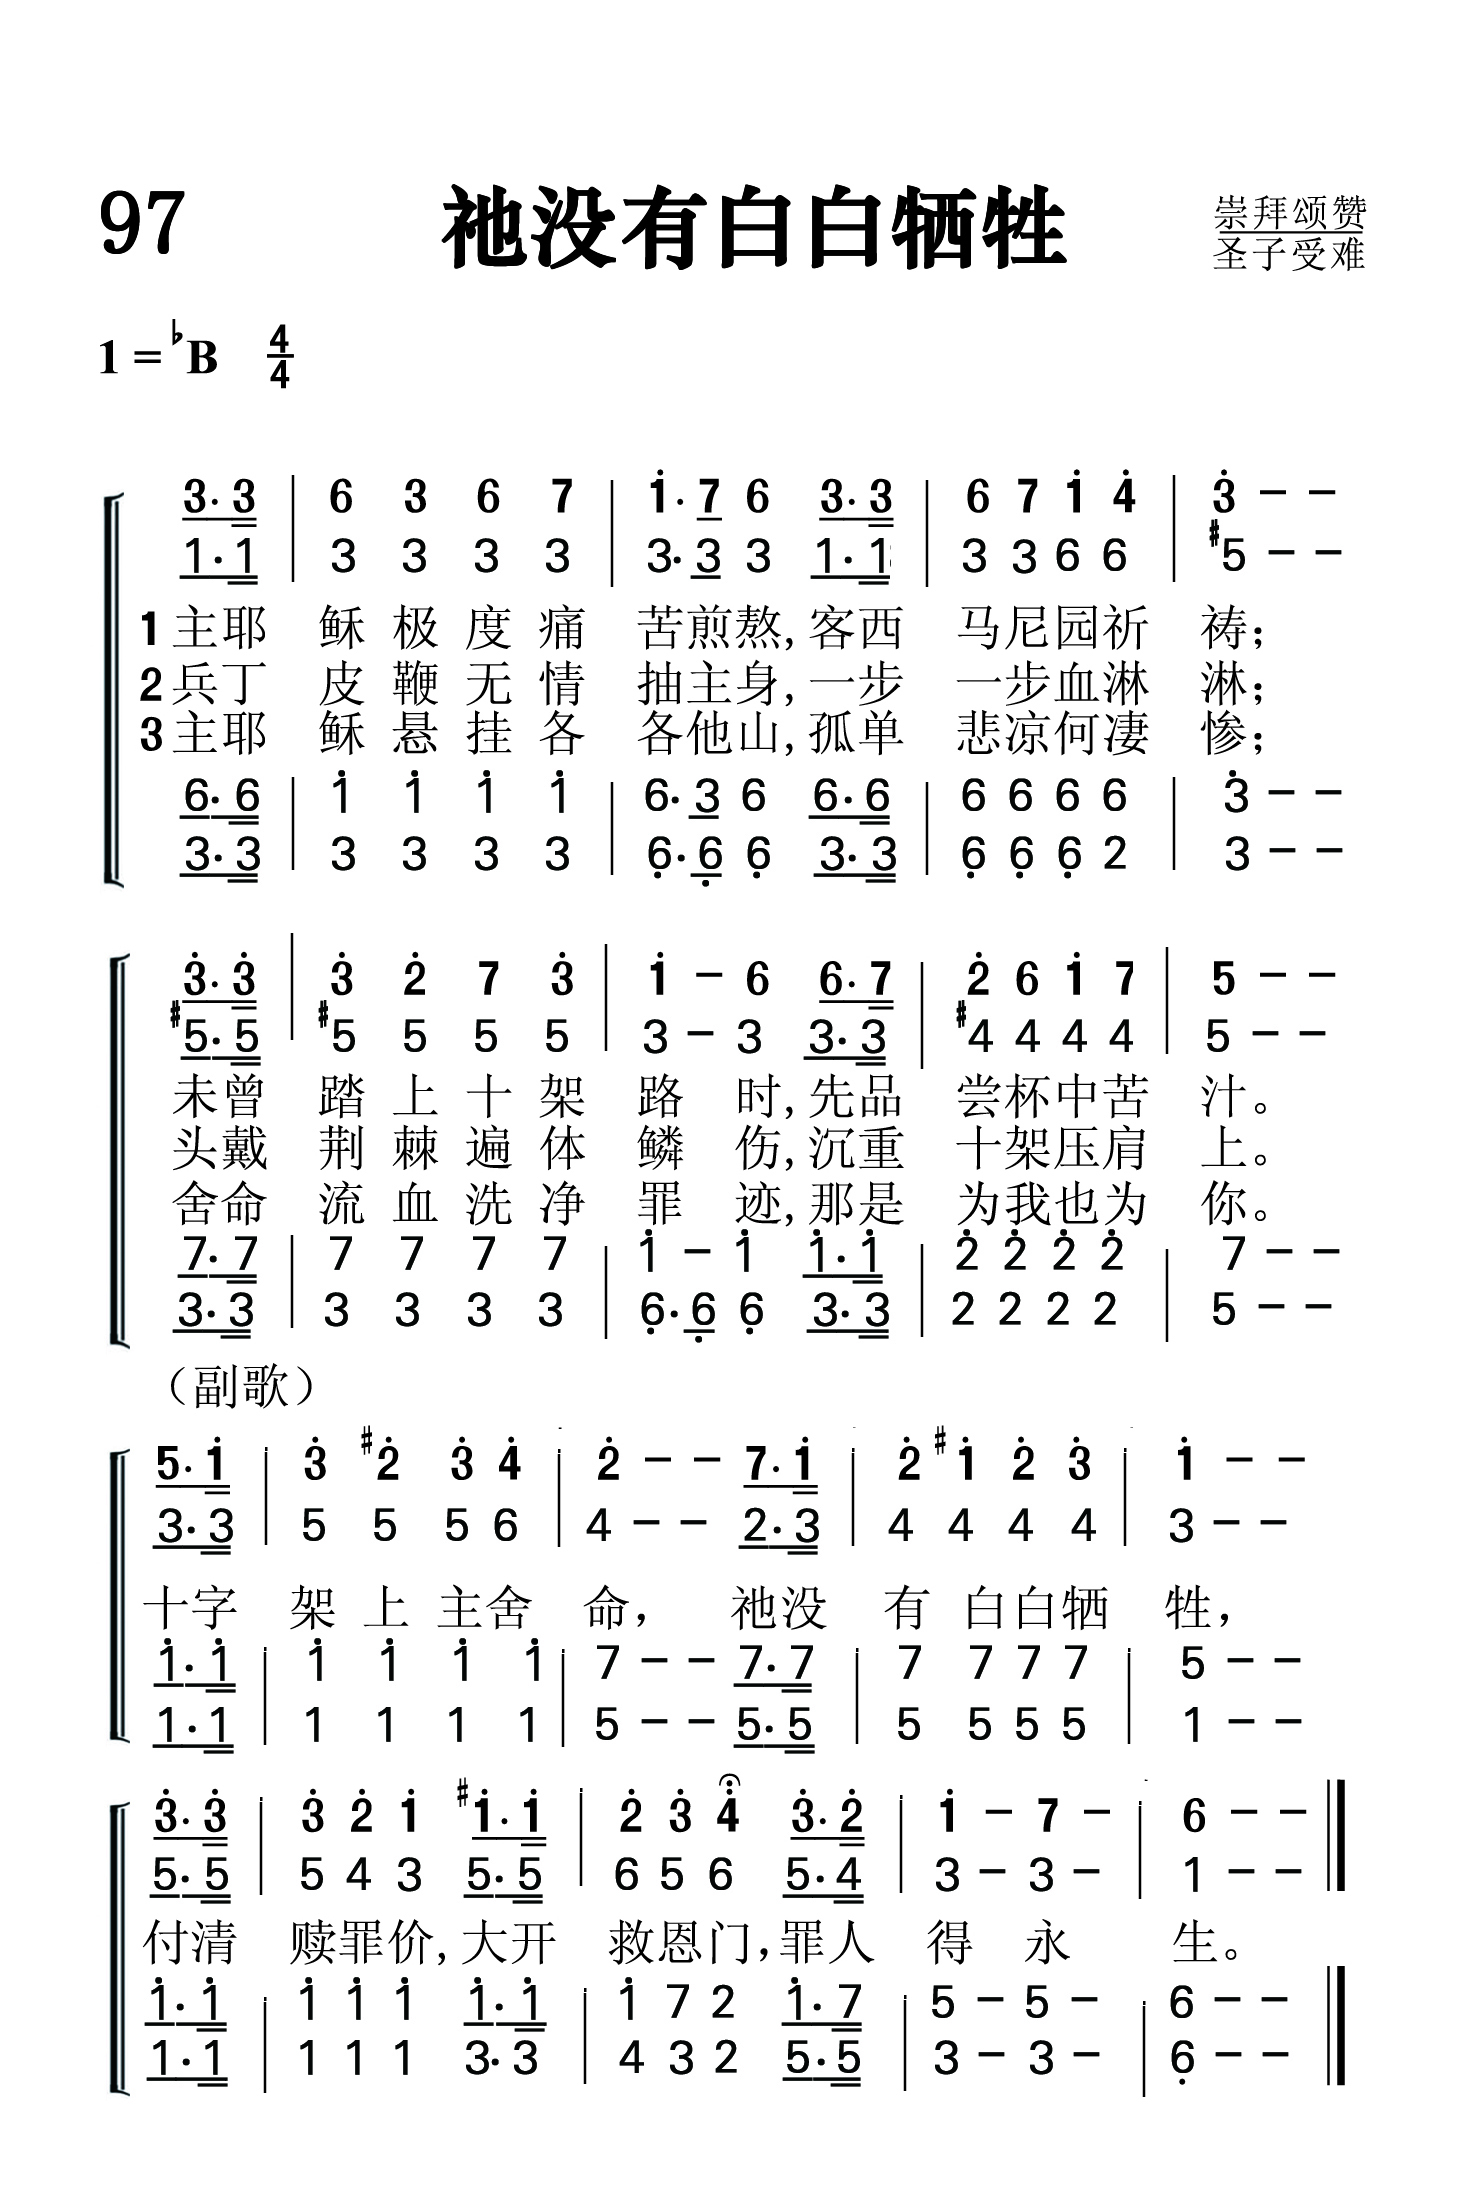 97 祂没有白白牺牲 崇拜颂赞
圣子受难
1 = ♭B 4/4
3. 3 | 6 3 6 7 | 1̇. 7 6 3. 3 | 6 7 1̇ 4̇ | 3̇ – –
1. 1 | 3 3 3 3 | 3. 3 3 1. 1 | 3 3 6 6 | #5 – –
1 主耶 稣极度痛 苦煎熬,客西 马尼园祈 祷;
2 兵丁 皮鞭无情 抽主身,一步 一步血淋 淋;
3 主耶 稣悬挂各 各他山,孤单 悲凉何凄 惨;
6. 6 | 1̇ 1̇ 1̇ 1̇ | 6. 3 6 6. 6 | 6 6 6 6 | 3̇ – –
3. 3 | 3 3 3 3 | 6̣. 6̣ 6̣ 3. 3 | 6̣ 6̣ 6̣ 2 | 3 – –
3̇. 3̇ | 3̇ 2̇ 7 3̇ | 1̇ – 6 6. 7 | 2̇ 6 1̇ 7 | 5 – –
#5. 5 | #5 5 5 5 | 3 – 3 3. 3 | #4 4 4 4 | 5 – –
未曾 踏上十架 路 时,先品 尝杯中苦 汁。
头戴 荆棘遍体 鳞 伤,沉重 十架压肩 上。
舍命 流血洗净 罪 迹,那是 为我也为 你。
7. 7 | 7 7 7 7 | 1̇ – 1̇ 1̇. 1̇ | 2̇ 2̇ 2̇ 2̇ | 7 – –
3. 3 | 3 3 3 3 | 6̣. 6̣ 6̣ 3. 3 | 2 2 2 2 | 5 – –
（副歌）
5. 1̇ | 3̇ #2̇ 3̇ 4̇ | 2̇ – – 7. 1̇ | 2̇ #1̇ 2̇ 3̇ | 1̇ – –
3. 3 | 5 5 5 6 | 4 – – 2. 3 | 4 4 4 4 | 3 – –
十字 架上主舍 命， 祂没 有白白牺 牲，
1̇. 1̇ | 1̇ 1̇ 1̇ 1̇ | 7 – – 7. 7 | 7 7 7 7 | 5 – –
1. 1 | 1 1 1 1 | 5 – – 5. 5 | 5 5 5 5 | 1 – –
3̇. 3̇ | 3̇ 2̇ 1̇ #1̇. 1̇ | 2̇ 3̇ 4̇ 3̇. 2̇ | 1̇ – 7 – | 6 – –
5. 5 | 5 4 3 5. 5 | 6 5 6 5. 4 | 3 – 3 – | 1 – –
付清 赎罪价,大开 救恩门,罪人 得 永 生。
1̇. 1̇ | 1̇ 1̇ 1̇ 1̇. 1̇ | 1̇ 7 2 1̇. 7 | 5 – 5 – | 6 – –
1. 1 | 1 1 1 3. 3 | 4 3 2 5. 5 | 3 – 3 – | 6̣ – –